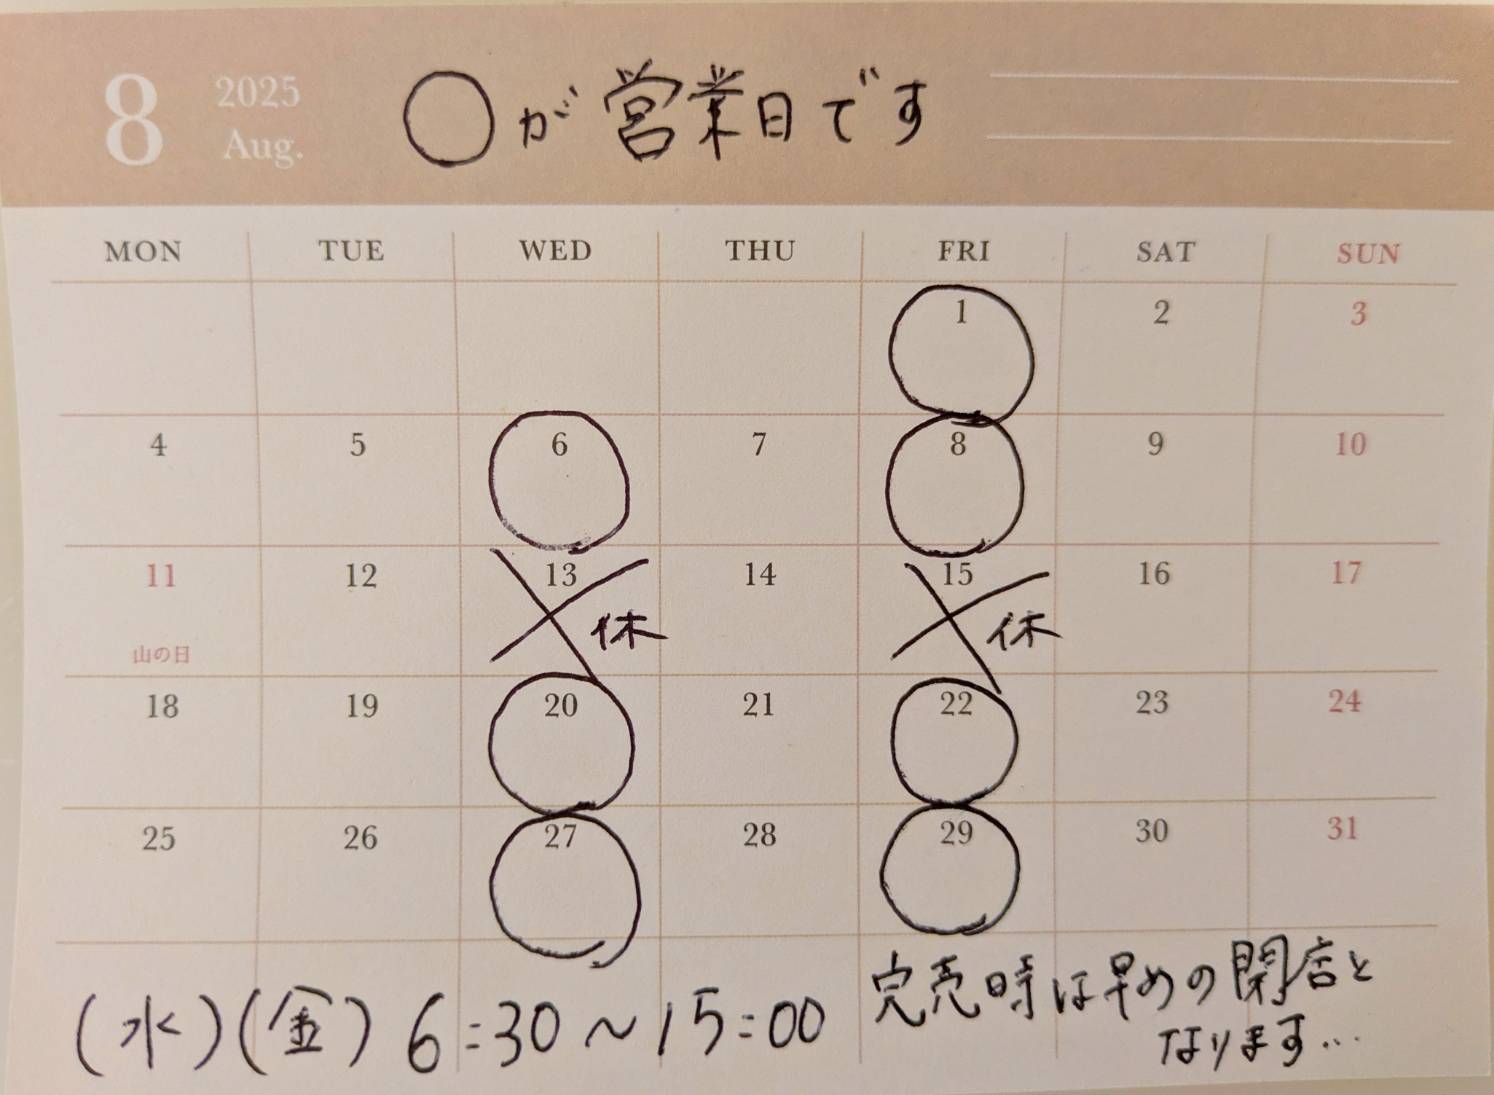 8 2025 ○が営業日です
Aug.
MON TUE WED THU FRI SAT SUN
1 2 3
4 5 6 7 8 9 10
11 12 13 14 15 16 17
山の日 休 休
18 19 20 21 22 23 24
25 26 27 28 29 30 31
(水)(金) 6:30~15:00 完売時は早めの閉店と
なります...